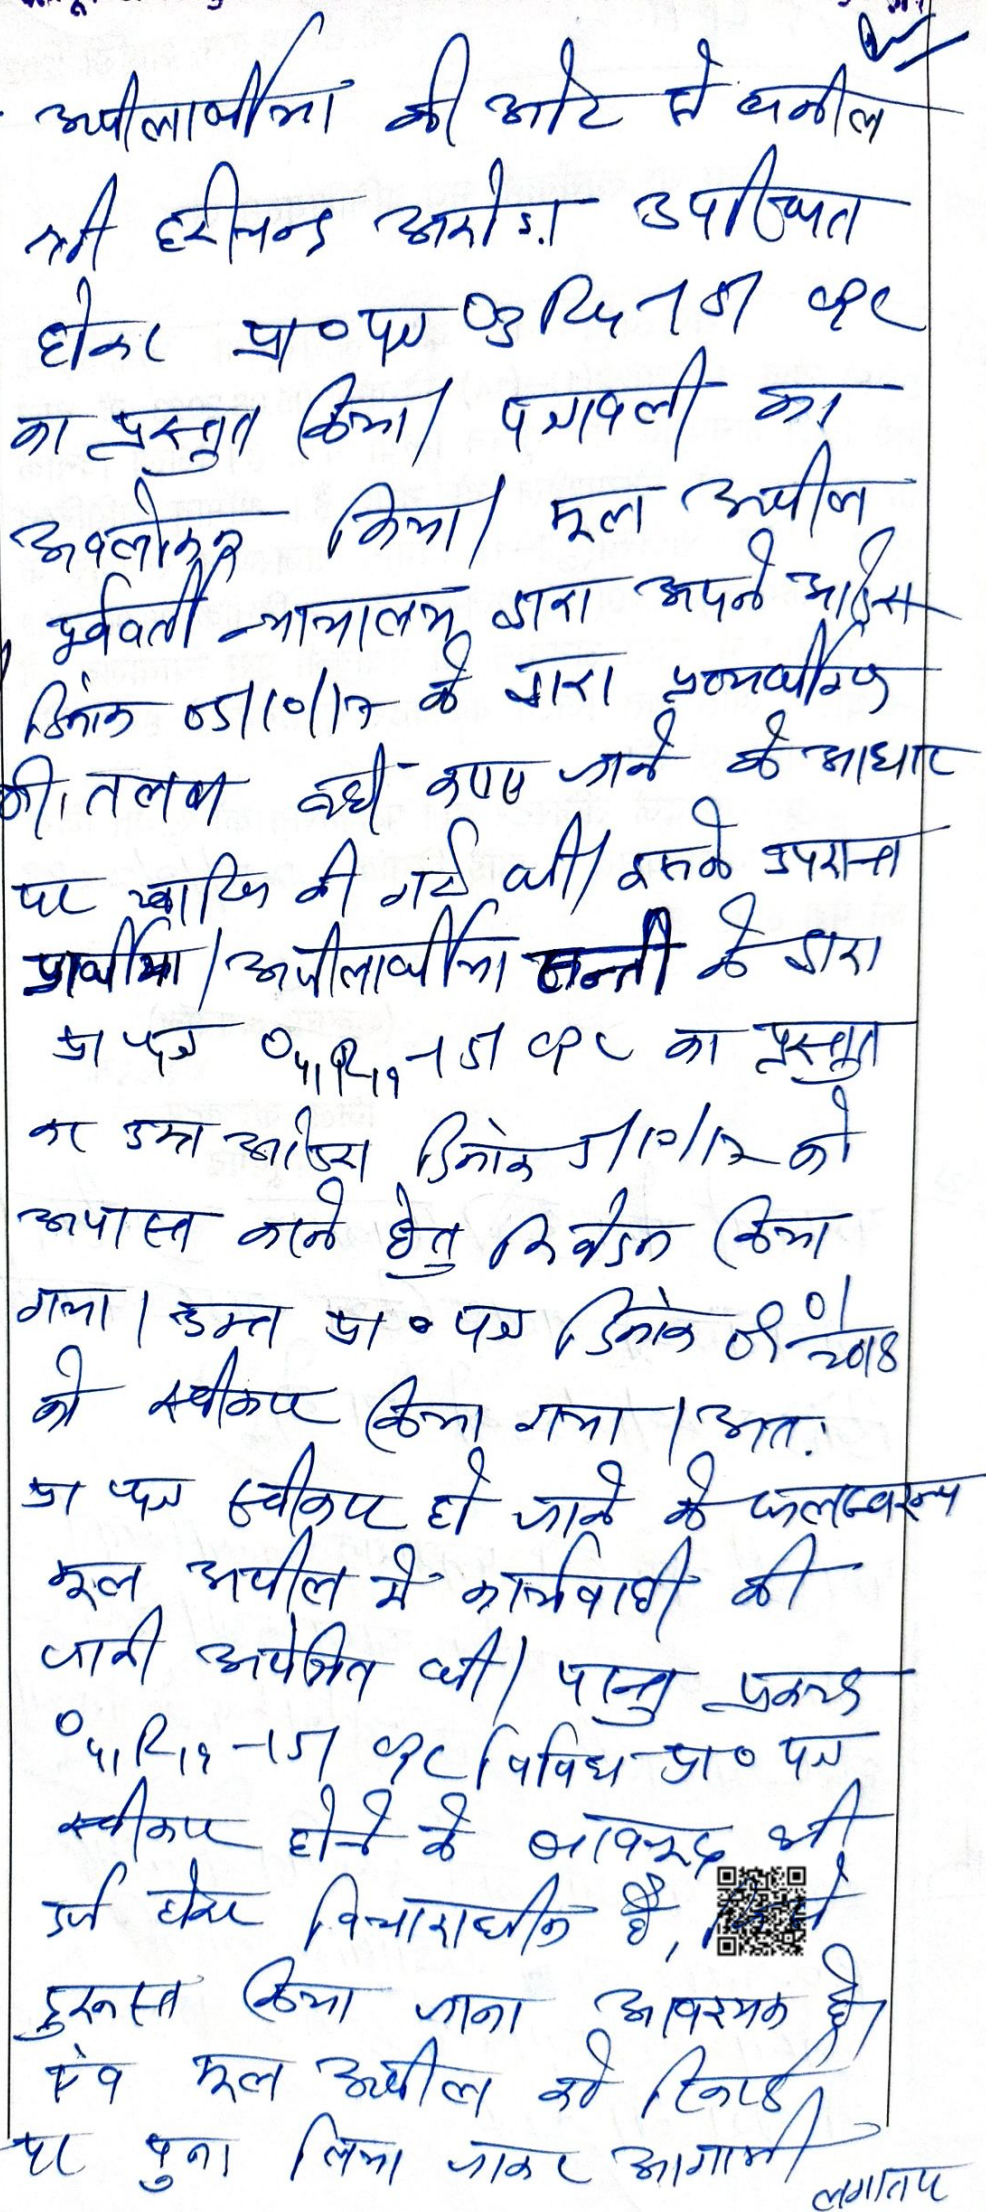 अपीलार्थीया की ओर से वकील
श्री हरीचन्द अरोड़ा उपस्थित
होकर प्रा० पत्र 151 CPC
का प्रस्तुत किया। पत्रावली का
अवलोकन किया। मूल अपील
पूर्ववर्ती न्यायालय द्वारा अपने आदेश
दिनांक 05/10/17 के द्वारा प्रत्यर्थीगण
की तलबा नहीं कराए जाने के आधार
पर खारिज की गई थी। इसके उपरान्त
प्रार्थीया/अपीलार्थीया सन्ती के द्वारा
प्रा पत्र 151 CPC का प्रस्तुत
कर उक्त आदेश दिनांक 5/10/17 को
अपास्त करने हेतु निवेदन किया
गया। उक्त प्रा० पत्र दिनांक 09/01/2018
को स्वीकार किया गया। अत:
प्रा पत्र स्वीकार हो जाने के फलस्वरूप
मूल अपील में कार्यवाही की
जानी अपेक्षित थी। परन्तु प्रकरण
151 CPC विविध प्रा० पत्र
स्वीकार होने के बावजूद भी
दर्ज होकर विचाराधीन है,
दुरूस्त किया जाना आवश्यक है।
एंव मूल अपील को रिकार्ड
पर पुनः लिया जाकर आगामी
लगातार